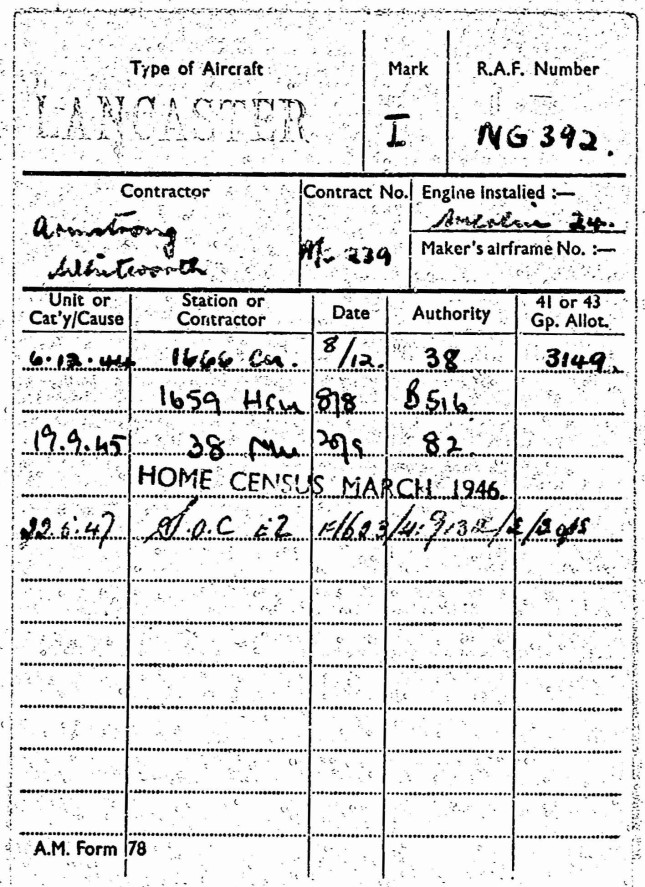 Type of Aircraft Mark R.A.F. Number
LANCASTER I NG 392.
Contractor Contract No. Engine installed :—
Armstrong Merlin 24.
Whitworth 239 Maker's airframe No. :—
Unit or Cat'y/Cause Station or Contractor Date Authority 41 or 43 Gp. Allot.
6.12.44 1666 Cu. 8/12. 38 3149.
1659 HCU 8/8 B516
19.9.45 38 MU 20/9 82
HOME CENSUS MARCH 1946.
22.5.47 S.O.C E2
A.M. Form 78